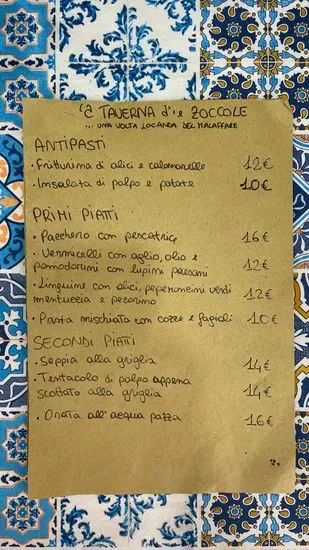 'E TAVERNA d' 'e ZOCCOLE
... UNA VOLTA LOCANDA DEL MALAFFARE
ANTIPASTI
• Fritturina di alici e calamarelle 12€
• Insalata di polpo e patate 10€
PRIMI PIATTI
• Pacchero con pescatrice 16€
• Vermicelli con aglio, olio e
pomodorini con lupini paesani 12€
• Linguine con alici, peperoncini verdi
mentuccia e pecorino 12€
• Pasta mischiata con cozze e fagioli 10€
SECONDI PIATTI
• Seppia alla griglia 14€
• Tentacolo di polpo appena
scottato alla griglia 14€
• Orata all'acqua pazza 16€